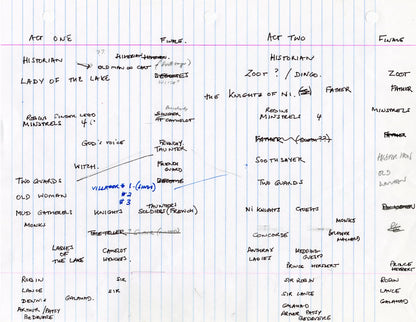 ACT ONE FINALE. ACT TWO FINALE
HISTORIAN HISTORIAN
OLD MAN ON CART
LADY OF THE LAKE ZOOT ? / DINGO. ZOOT
THE KNIGHTS OF NI. FATHER FATHER
ROBINS SINGER LEAD SINGER ROBINS MINSTRELS
MINSTRELS 4 AT CAMELOT MINSTRELS
GOD'S VOICE FRENCHY FATHER FATHER
TAUNTER
WITCH. FRENCH SOOTHSAYER HISTORIAN
GUARD OLD
TWO GUARDS TWO GUARDS WOMAN
VILLAGER # 1
OLD WOMAN # 2
# 3 TAUNTERS
MUD GATHERERS KNIGHTS SOLDIERS (FRENCH) NI KNIGHTS GUESTS
MONKS MONKS
CONCORDE
LADIES CAMELOT ANTHRAX WEDDING
OF THE LAKE WENCHES. LADIES GUESTS
PRINCE HERBERT PRINCE
HERBERT
ROBIN SIR SIR ROBIN ROBIN
LANCE SIR SIR LANCE LANCE
DENNIS GALAHAD. GALAHAD. GALAHAD
ARTHUR / PATSY ARTHUR PATSY
BEDEVERE BEDEVERE